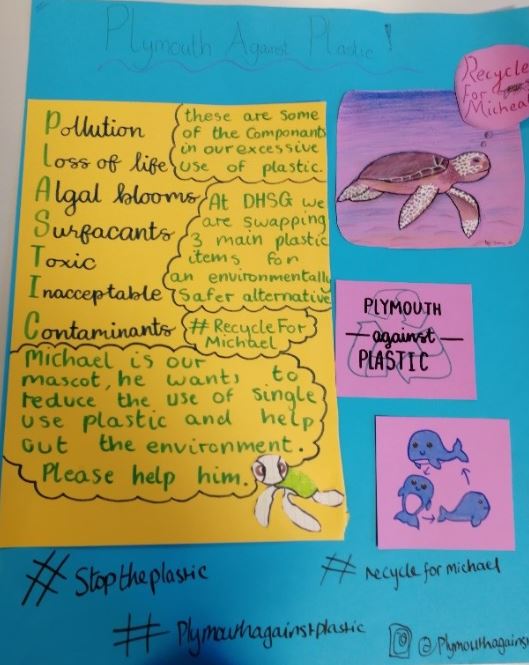 Plymouth Against Plastic!
Recycle
For
Michael
Pollution
Loss of life
Algal blooms
Surfacants
Toxic
Inacceptable
Contaminants
these are some
of the Componants
in our excessive
use of plastic.
At DHSG we
are swapping
3 main plastic
items for
an environmentally
safer alternative
#RecycleFor
Michael
PLYMOUTH
against
PLASTIC
Michael is our
mascot, he wants to
reduce the use of single
use plastic and help
out the environment.
Please help him.
#Stoptheplastic
#recycle for michael
#Plymouthagainstplastic
@Plymouthagains